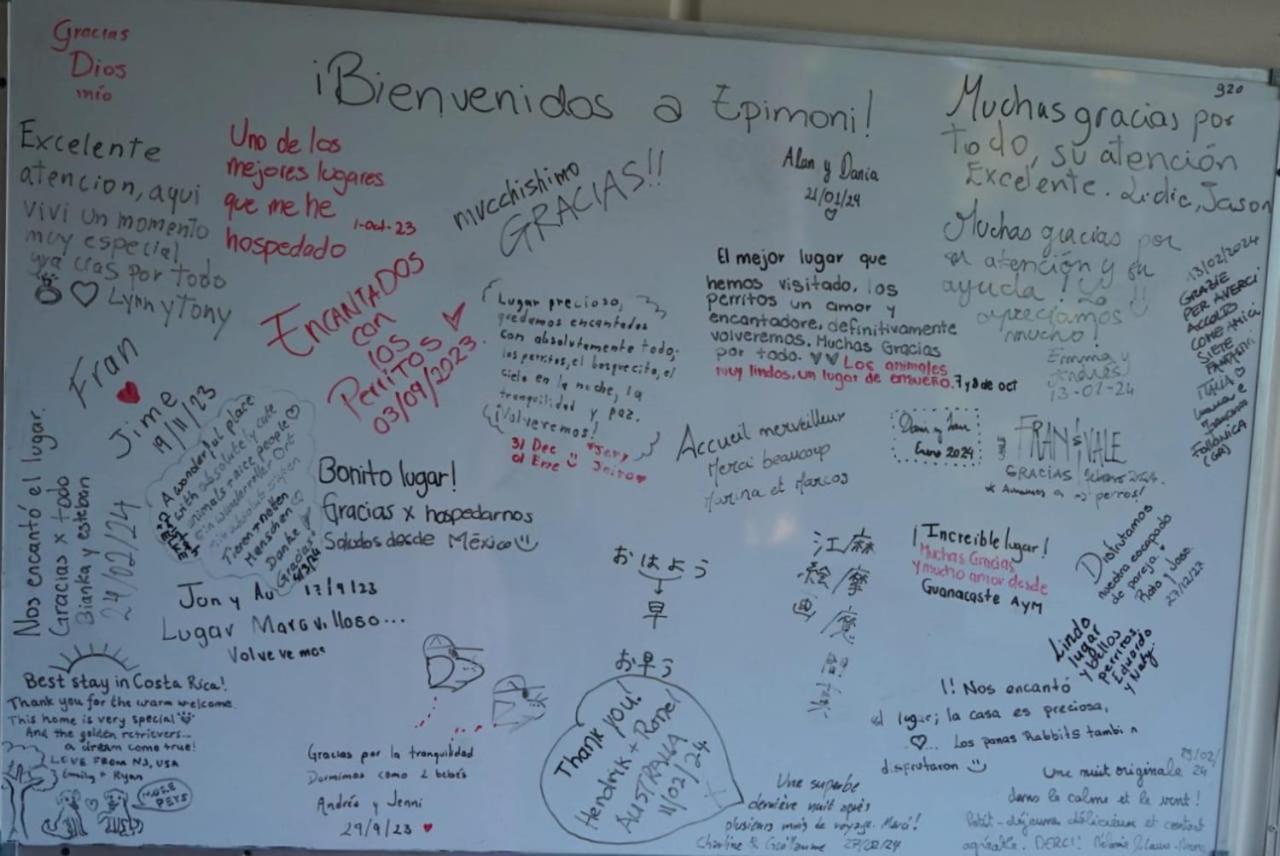 Gracias
Dios
mío
¡Bienvenidos a Epimoni!
320
Muchas gracias por
todo, su atención
Excelente. Lidic, Jason
Excelente
atencion, aqui
vivi un momento
muy especial
gracias por todo
Lynn y Tony
Uno de los
mejores lugares
que me he
hospedado
1-oct-23
mucchishimo
GRACIAS!!
Alan y Dania
21/01/24
Muchas gracias por
su atención y su
ayuda! Lo
apreciamos
mucho!
Emma y
Andrés
13-02-24
13/02/2024
GRAZIE
PER AVERCI
ACCOLTO
COME AMICI
SIETE
FANTASTICI
ITALIA
FOLLONICA
(GR)
ENCANTADOS
con
los
Perritos
03/09/2023
Lugar precioso,
quedamos encantados
con absolutamente todo;
los perritos, el bosquecito, el
cielo en la noche, la
tranquilidad y paz.
¡Volveremos!
31 Dec
01 Ene
El mejor lugar que
hemos visitado, los
perritos un amor y
encantadore, definitivamente
volveremos. Muchas Gracias
por todo. Los animales
muy lindos, un lugar de ensueño. 7 y 8 de oct
Fran
Jime
19/11/23
Nos encantó el lugar.
Gracias x todo
Bianka y esteban
24/02/24
A wonderful place
with absolutely cute
animals + nice people
Ein wundervoller Ort
mit absolut süßen
Tieren + netten
Menschen
Danke
Gracias
Bonito lugar!
Gracias x hospedarnos
Saludos desde México
Accueil merveilleux
Merci beaucoup
Marina et Marcos
Enero 2024
FRAN & VALE
GRACIAS, febrero 2024.
* Amamos a perros!
Jon y Au 17/9/23
Lugar Maravilloso...
Volveremos
おはよう
早
お早う
江麻
絵摩
画魔
¡Increible lugar!
Muchas Gracias
y mucho amor desde
Guanacaste AyM
Disfrutamos
nuestra escapada
de pareja
27/12/23
Lindo
lugar
y bellos
perritos,
Eduardo
y Naty.
Best stay in Costa Rica!
Thank you for the warm welcome.
This home is very special
And the golden retrievers...
a dream come true!
LOVE FROM NJ, USA
Emily + Ryan
MORE
PETS
Gracias por la tranquilidad
Dormimos como 2 bebés
Andrés y Jenni
29/9/23
Thank you!
Hendrik + Rone
AUSTRALIA
11/02/24
!! Nos encantó
el lugar; la casa es preciosa,
... Los panas Rabbits tambi n
disfrutaron
Une superbe
dernière nuit après
plusieurs mois de voyage. Merci!
Charline & Guillaume 27/02/24
Une nuit originale
dans le calme et le vent!
Petit-déjeuner délicieux et contact
agréable. MERCI!